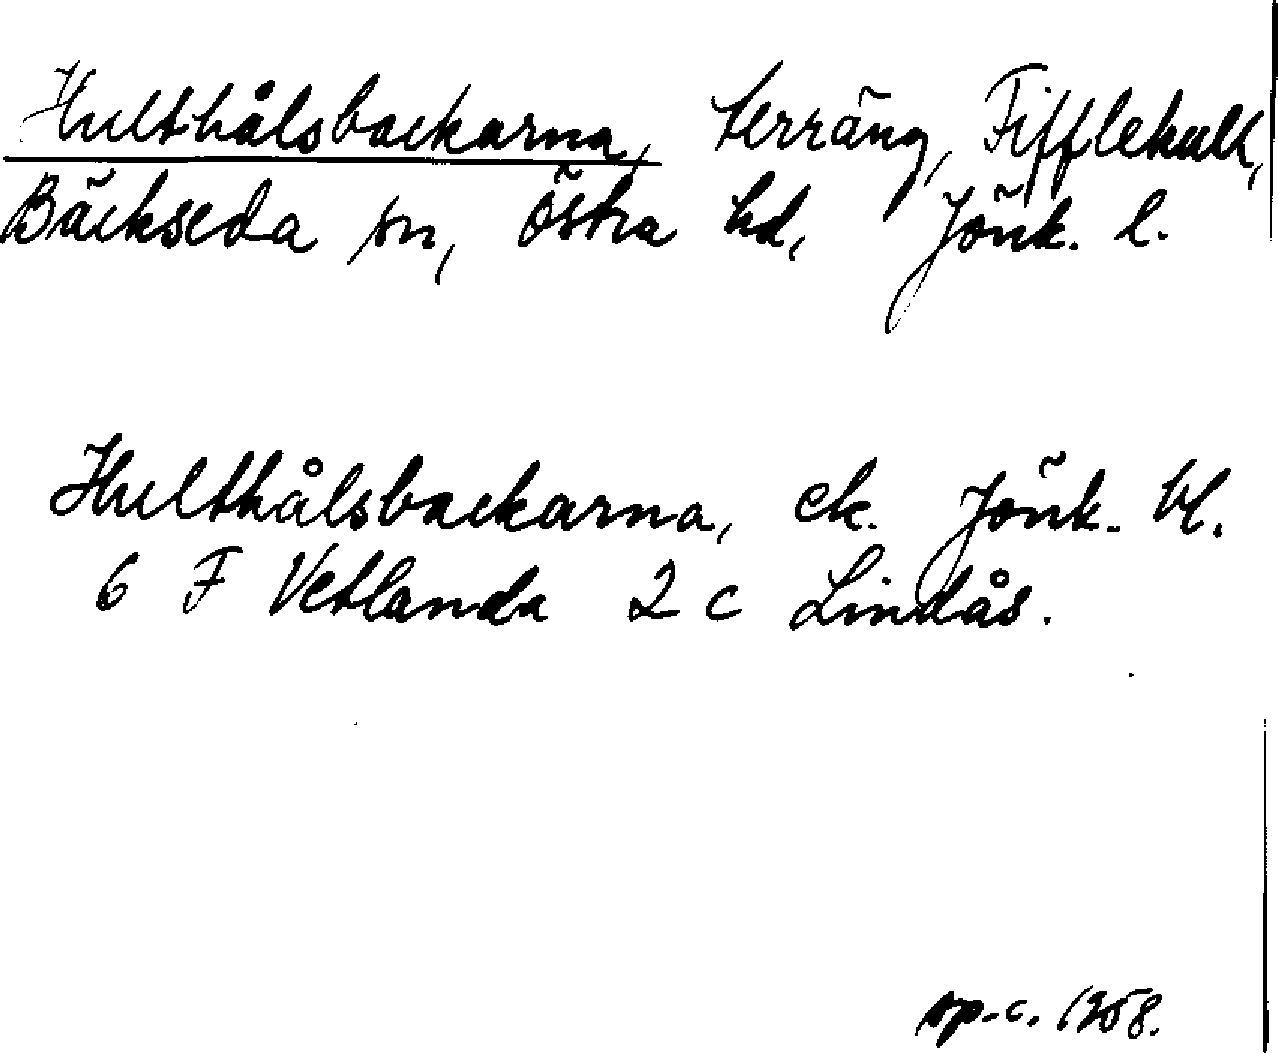 Hulthålsbackarna, terräng, Fifflekull,
Bäckseda sn, Östra hd, Jönk. l.
Hulthålsbackarna, ek. Jönk. bl.
6 F Vetlanda 2 c Lindås.
sp-c. 1958.